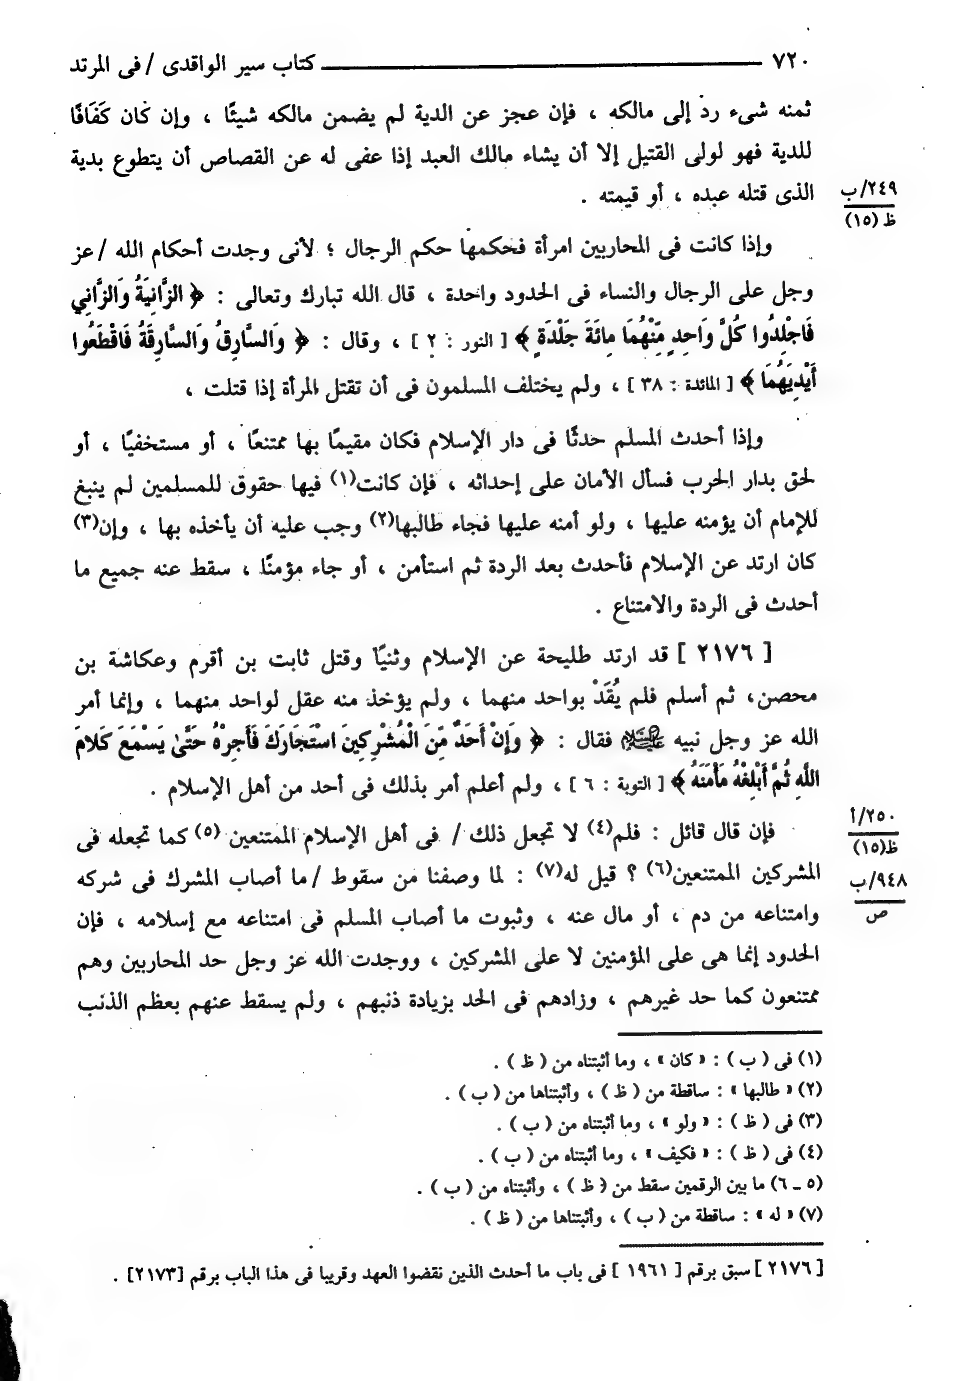 ٧٢٠ ــــــــــــــــ كتاب سير الواقدى / فى المرتد
ثمنه شىء رد إلى مالكه ، فإن عجز عن الدية لم يضمن مالكه شيئًا ، وإن كان كَفَافًا
للدية فهو لولى القتيل إلا أن يشاء مالك العبد إذا عفى له عن القصاص أن يتطوع بدية
الذى قتله عبده ، أو قيمته .
٢٤٩/ب
ظ (١٥)
وإذا كانت فى المحاربين امرأة فحكمها حكم الرجال ؛ لأنى وجدت أحكام الله / عز
وجل على الرجال والنساء فى الحدود واحدة ، قال الله تبارك وتعالى : ﴿ الزَّانِيَةُ وَالزَّانِي
فَاجْلِدُوا كُلَّ وَاحِدٍ مِّنْهُمَا مِائَةَ جَلْدَةٍ ﴾ [ النور : ٢ ] ، وقال : ﴿ وَالسَّارِقُ وَالسَّارِقَةُ فَاقْطَعُوا
أَيْدِيَهُمَا ﴾ [ المائدة : ٣٨ ] ، ولم يختلف المسلمون فى أن تقتل المرأة إذا قتلت ،
وإذا أحدث المسلم حدثًا فى دار الإسلام فكان مقيمًا بها ممتنعًا ، أو مستخفيًا ، أو
لحق بدار الحرب فسأل الأمان على إحداثه ، فإن كانت(١) فيها حقوق للمسلمين لم ينبغ
للإمام أن يؤمنه عليها ، ولو أمنه عليها فجاء طالبها(٢) وجب عليه أن يأخذه بها ، وإن(٣)
كان ارتد عن الإسلام فأحدث بعد الردة ثم استأمن ، أو جاء مؤمنًا ، سقط عنه جميع ما
أحدث فى الردة والامتناع .
[ ٢١٧٦ ] قد ارتد طليحة عن الإسلام وثنيًا وقتل ثابت بن أقرم وعكاشة بن
محصن، ثم أسلم فلم يُقَدْ بواحد منهما ، ولم يؤخذ منه عقل لواحد منهما ، وإنما أمر
الله عز وجل نبيه ﷺ فقال : ﴿ وَإِنْ أَحَدٌ مِّنَ الْمُشْرِكِينَ اسْتَجَارَكَ فَأَجِرْهُ حَتَّىٰ يَسْمَعَ كَلَامَ
اللَّهِ ثُمَّ أَبْلِغْهُ مَأْمَنَهُ ﴾ [ التوبة : ٦ ] ، ولم أعلم أمر بذلك فى أحد من أهل الإسلام .
فإن قال قائل : فلم(٤) لا تجعل ذلك / فى أهل الإسلام الممتنعين (٥) كما تجعله فى
٢٥٠/أ
ظ(١٥)
المشركين الممتنعين(٦) ؟ قيل له(٧) : لما وصفنا من سقوط / ما أصاب المشرك فى شركه
٩٤٨/ب
ص
وامتناعه من دم ، أو مال عنه ، وثبوت ما أصاب المسلم فى امتناعه مع إسلامه ، فإن
الحدود إنما هى على المؤمنين لا على المشركين ، ووجدت الله عز وجل حد المحاربين وهم
ممتنعون كما حد غيرهم ، وزادهم فى الحد بزيادة ذنبهم ، ولم يسقط عنهم بعظم الذنب
(١) فى ( ب ) : « كان » ، وما أثبتناه من ( ظ ) .
(٢) « طالبها » : ساقطة من ( ظ ) ، وأثبتناها من ( ب ) .
(٣) فى ( ظ ) : « ولو » ، وما أثبتناه من ( ب ) .
(٤) فى ( ظ ) : « فكيف » ، وما أثبتناه من ( ب ) .
(٥ ـ ٦) ما بين الرقمين سقط من ( ظ ) ، وأثبتناه من ( ب ) .
(٧) « له » : ساقطة من ( ب ) ، وأثبتناها من ( ظ ) .
[ ٢١٧٦ ] سبق برقم [ ١٩٦١ ] فى باب ما أحدث الذين نقضوا العهد وقريبا فى هذا الباب برقم [٢١٧٣] .